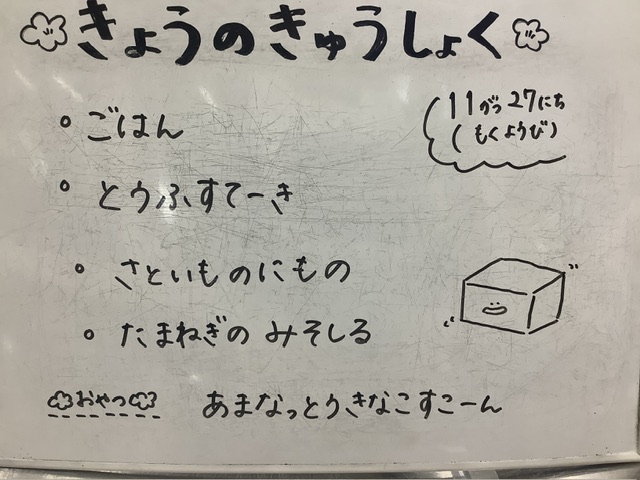 きょうのきゅうしょく
11がつ27にち
(もくようび)
・ごはん
・とうふすてーき
・さといものにもの
・たまねぎのみそしる
おやつ あまなっとうきなこすこーん